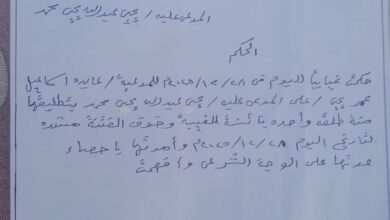 المدعى عليه / يحيى عبدالله يحيى محمد
الحكم
حكمت غيابياً اليوم في ٢٨/١٢/٢٠٢٥م للمدعية / عايده اسماعيل
عمر يحيى / على المدعى عليه / يحيى عبدالله يحيى محمد بتطليقها
منه طلقة واحده بائنة للغيبة وخوف الفتنة مبتده
تاريخ اليوم ٢٨/١٢/٢٠٢٥م وأمرتها باحصاء
عدتها على الوجه الشرعي وأفهمت